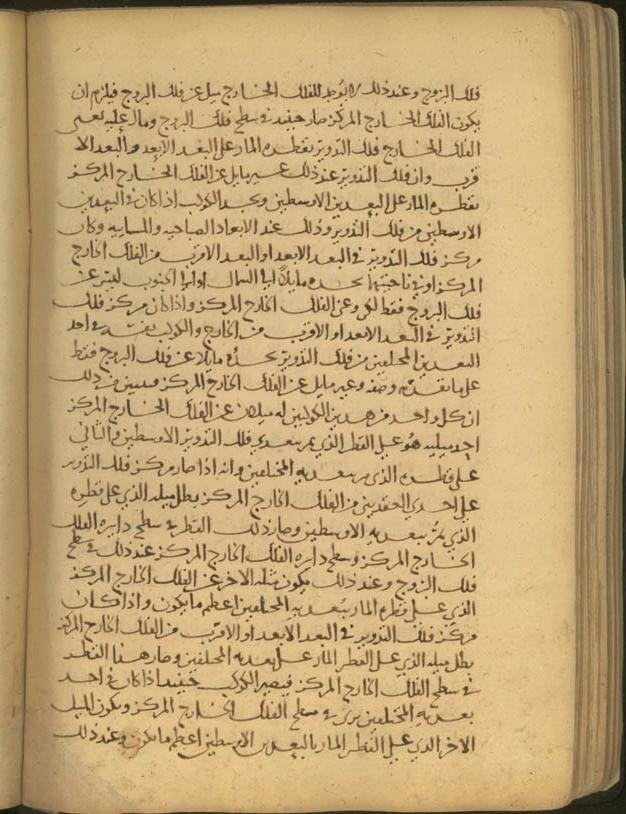 فلك البروج وعند ذلك لا يوجد للفلك الخارج ميل عن فلك البروج فيلزم ان
يكون الفلك الخارج المركز صار حينئذ في سطح فلك البروج ومال عليه يعنى
الفلك الخارج فلك التدوير بقطره المار على البعد الابعد والبعد الا
قرب وان فلك التدوير عند ذلك غير مايل عن الفلك الخارج المركز
بقطره المار على البعدين الاوسطين ونجد الكوكب اذا كان في البعدين
الاوسطين من فلك التدوير وذلك عند الابعاد الصباحيه والمساييه وكان
مركز فلك التدوير في البعد الابعد او البعد الاقرب من الفلك الخارج
المركز او في ناحيتهما نجده مايلا الى الشمال او الى الجنوب ليس عن
فلك البروج فقط لكن وعن الفلك الخارج المركز واذا كان مركز فلك
التدوير في البعد الابعد او الاقرب من الخارج والكوكب بعينه في احد
البعدين المختلفين من فلك التدوير نجده مايلا عن فلك البروج فقط
على ما تقدم وصفه وغير مايل عن الفلك الخارج المركز فتبين من ذلك
ان كل واحد من هذين الكوكبين له ميلان عن الفلك الخارج المركز
احد ميليه هو على القطر الذي يمر ببعدي فلك التدوير الاوسطين والثاني
على قطره الذى يمر ببعديه المختلفين وانه اذا صار مركز فلك التدوير
على احدى العقدتين من الفلك الخارج المركز بطل ميله الذي على قطره
الذي يمر ببعديه الاوسطين وصار ذلك القطر في سطح دايره الفلك
الخارج المركز وسطح دايره الفلك الخارج المركز عند ذلك في سطح
فلك البروج وعند ذلك يكون ميله الاخر عن الفلك الخارج المركز
الذي على قطره المار ببعديه المختلفين اعظم ما يكون واذا كان
مركز فلك التدوير في البعد الابعد او الاقرب من الفلك الخارج المركز
بطل ميله الذي على القطر المار على بعديه المختلفين وصار هذا القطر
في سطح الفلك الخارج المركز فيصير الكوكب حينئذ اذا كان في احد
بعديه المختلفين يرى في سطح الفلك الخارج المركز ويكون الميل
الاخر الذي على القطر المار بالبعدين الاوسطين اعظم ما يكون وعند ذلك